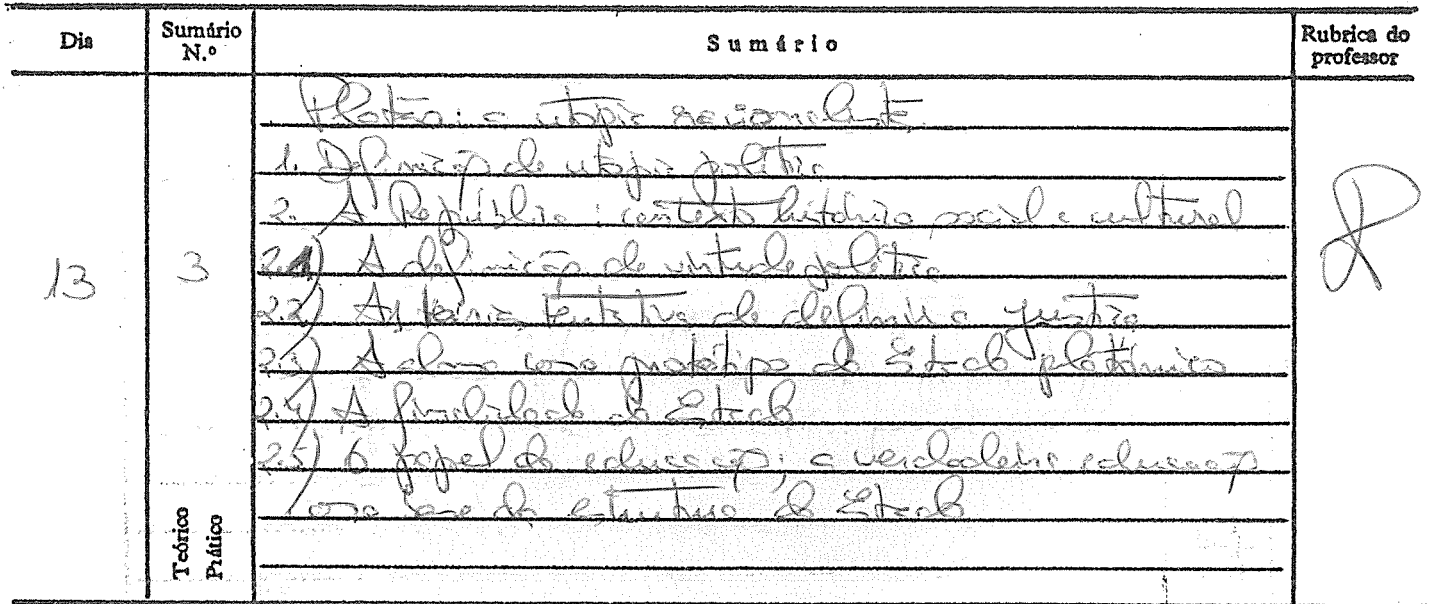 Dia Sumário N.º Sumário Rubrica do professor
Platão: a utopia racionalista.
1. Definição de utopia política
2. A República: contexto histórico social e cultural
13 3 2.1) A definição de virtude política
2.2) As tentativa de definir a justiça
2.3) A alma como protótipo do Estado platónico
2.4) A finalidade do Estado
2.5) O papel da educação; a verdadeira educação
como base da estrutura do Estado
Teórico
Prático